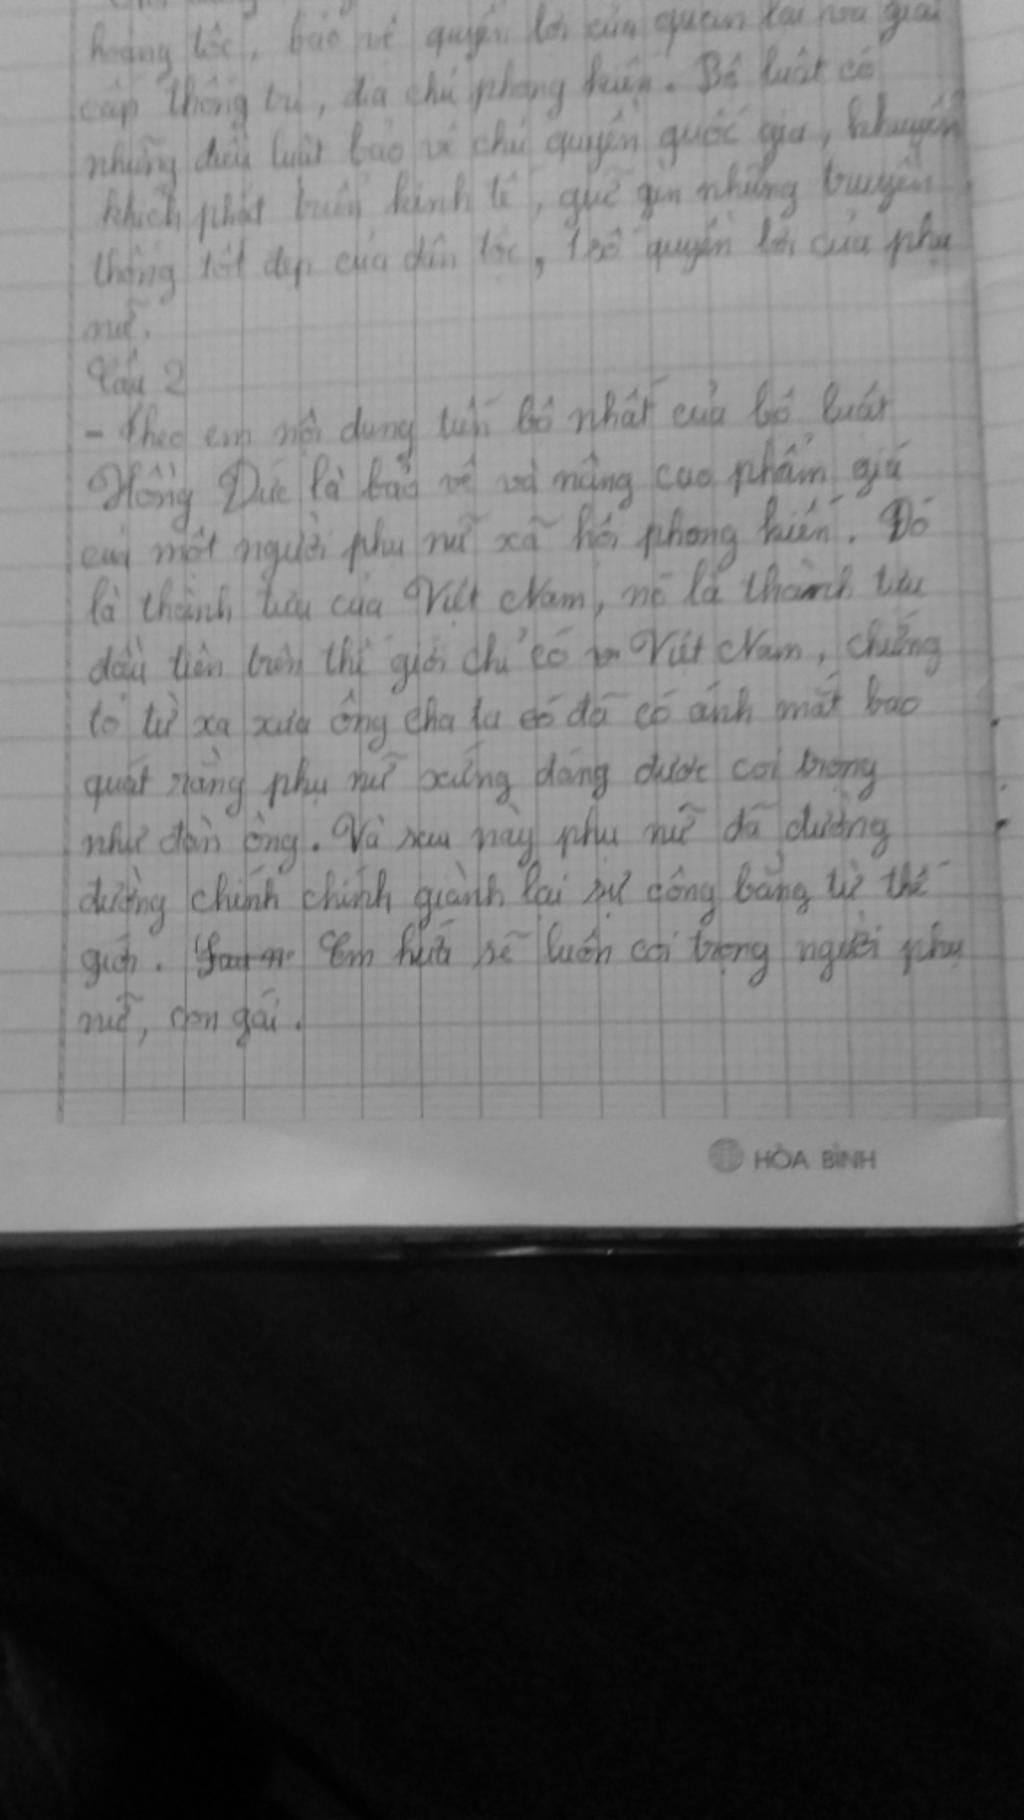 hoàng tộc, bảo vệ quyền lợi của quan lại và giai
cấp thống trị, địa chủ phong kiến. Bộ luật có
những điều luật bảo vệ chủ quyền quốc gia, khuyến
khích phát triển kinh tế, giữ gìn những truyền
thống tốt đẹp của dân tộc, 1 số quyền lợi của phụ
nữ.
Câu 2
- Theo em nội dung tiến bộ nhất của bộ luật
Hồng Đức là bảo vệ và nâng cao phẩm giá
của một người phụ nữ xã hội phong kiến. Đó
là thành tựu của Việt Nam, nó là thành tựu
đầu tiên trên thế giới chỉ có Việt Nam, chứng
tỏ từ xa xưa ông cha ta có đã có ánh mắt bao
quát rằng phụ nữ xứng đáng được coi trọng
như đàn ông. Và sau này phụ nữ đã đường
đường chính chính giành lại sự công bằng từ thế
giới. Em hứa sẽ luôn coi trọng người phụ
nữ, con gái.
HÒA BÌNH